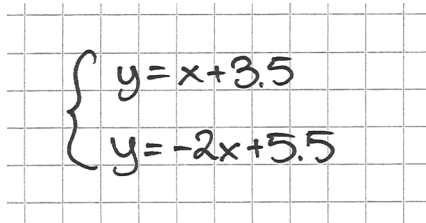 y=x+3.5
y=-2x+5.5